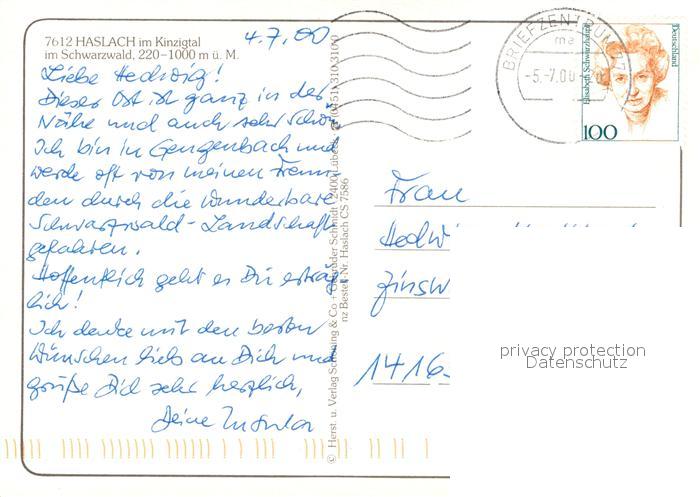 7612 HASLACH im Kinzigtal
im Schwarzwald, 220-1000 m ü. M.
4.7.00
Liebe Hedwig!
Dieser Ort ist ganz in der
Nähe und auch sehr schön.
Ich bin in Gengenbach und
werde oft von meinen Freun
den durch die wunderbare
Schwarzwald-Landschaft
gefahren.
Hoffentlich geht es Dir erträg
lich!
Ich denke mit den besten
Wünschen lieb an Dich und
grüße Dich sehr herzlich,
Deine
© Herst. u. Verlag Schöning & Co + Gebrüder Schmidt · 2400 Lübeck · (0451) 31031 00
nz Bestell-Nr. Haslach CS 7586
BRIEFZENTRUM 77
ma
-5.-7.00
Elisabeth Schwarzhaupt
Deutschland
100
Frau
Hedwi
Zinsw
1416
privacy protection
Datenschutz